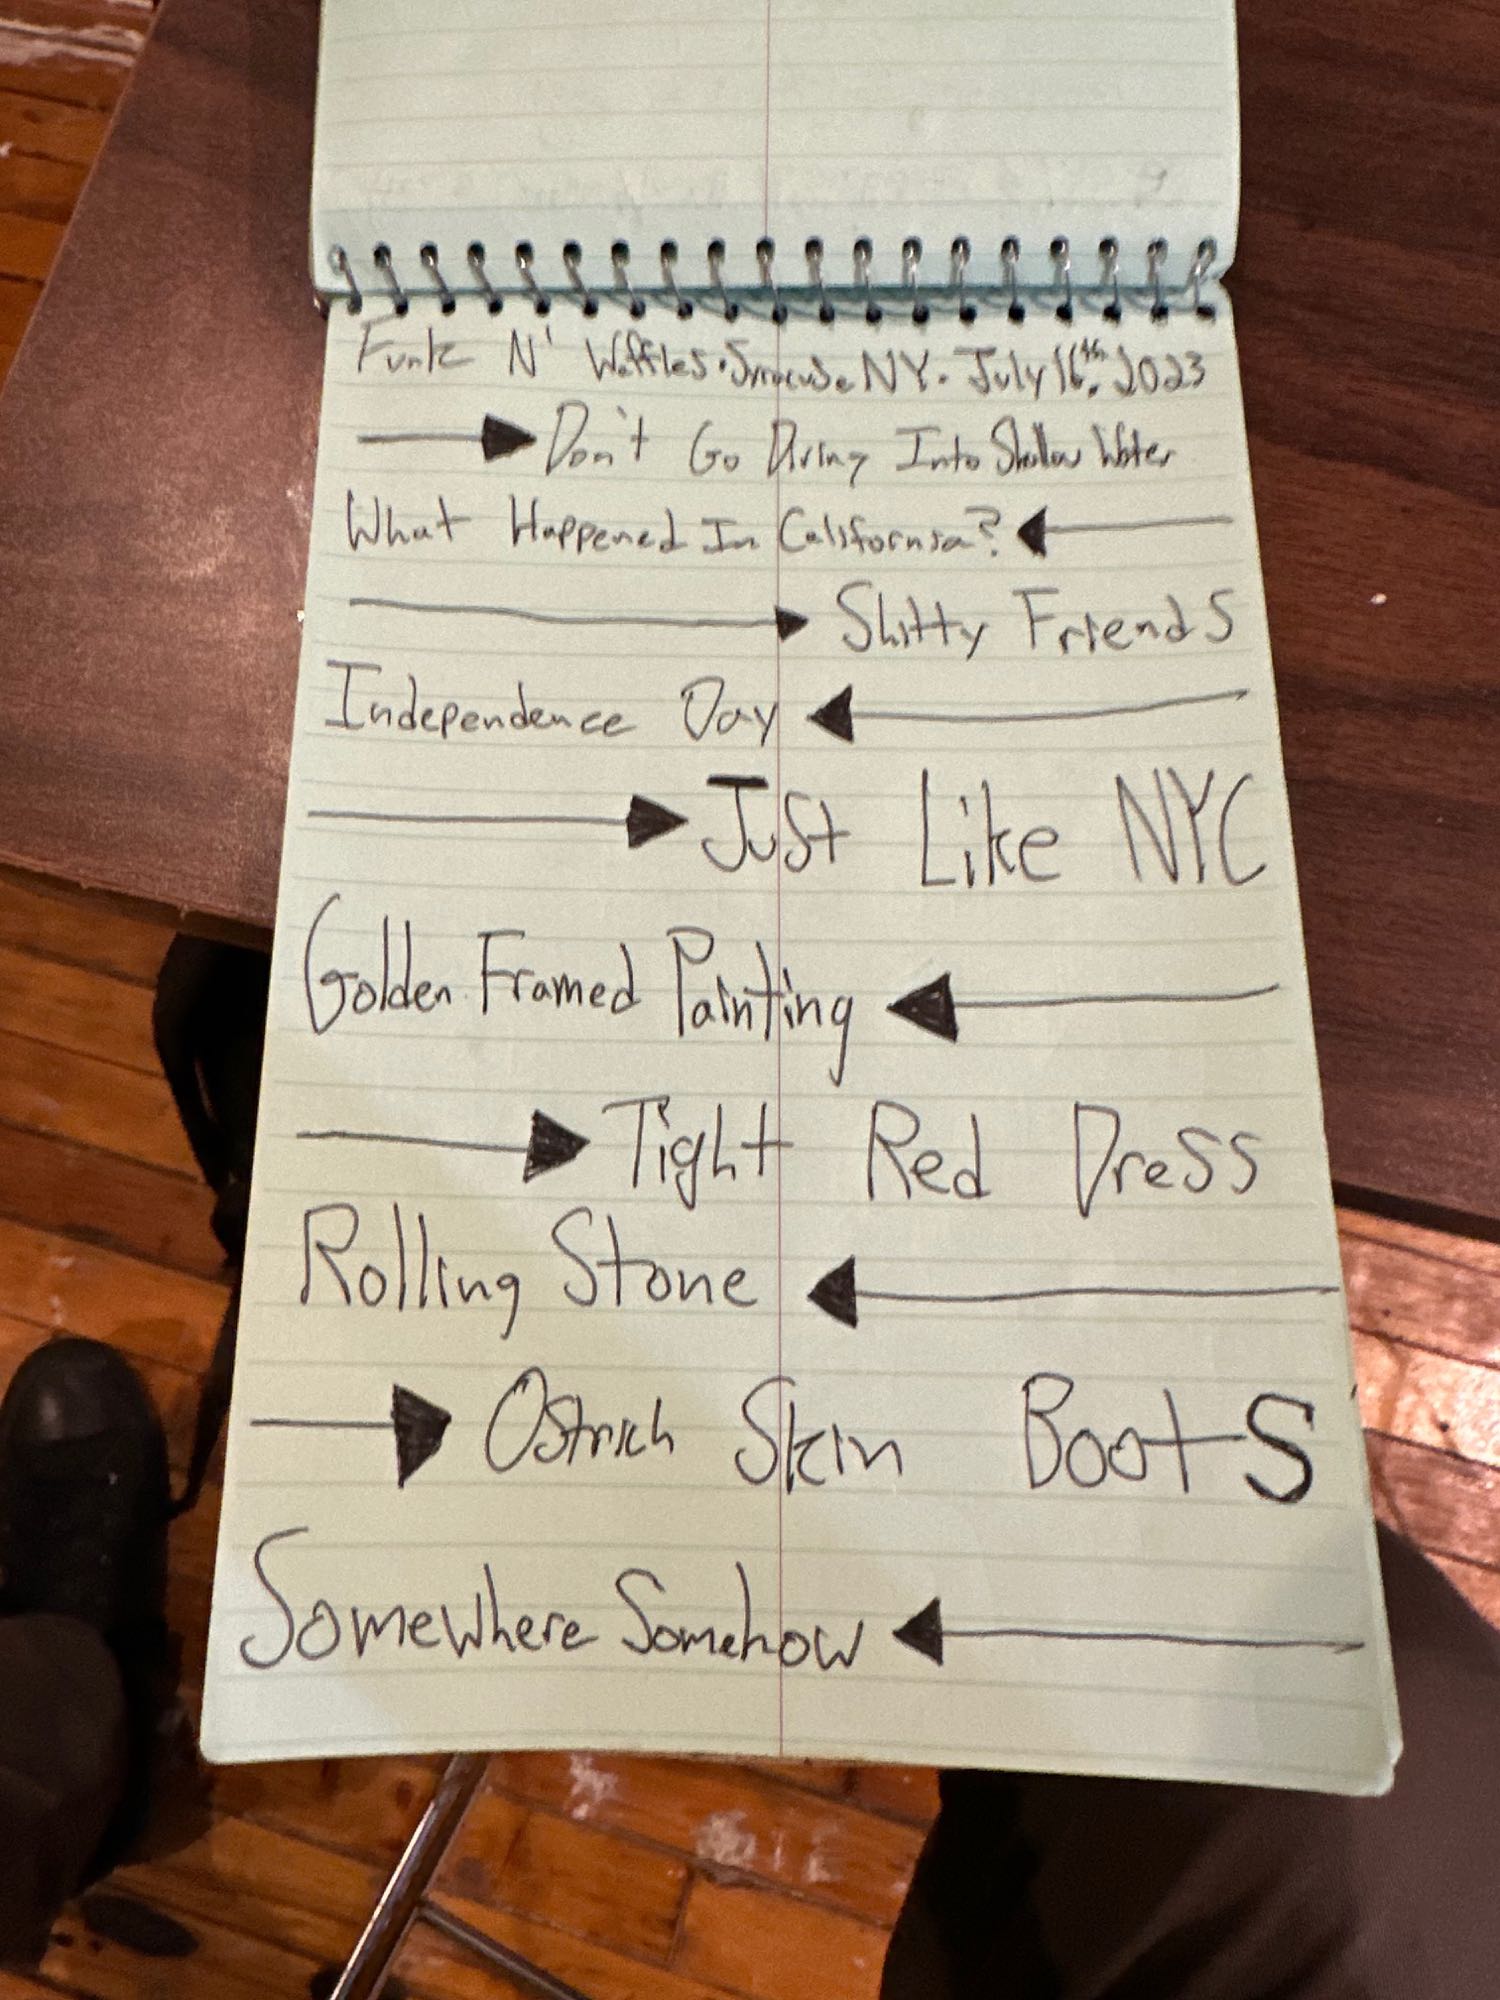 Funk N' Waffles • Syracuse NY. July 16th. 2023
Don't Go Diving Into Shallow Water
What Happened In California?
Shitty Friends
Independence Day
Just Like NYC
Golden Framed Painting
Tight Red Dress
Rolling Stone
Ostrich Skin Boots
Somewhere Somehow